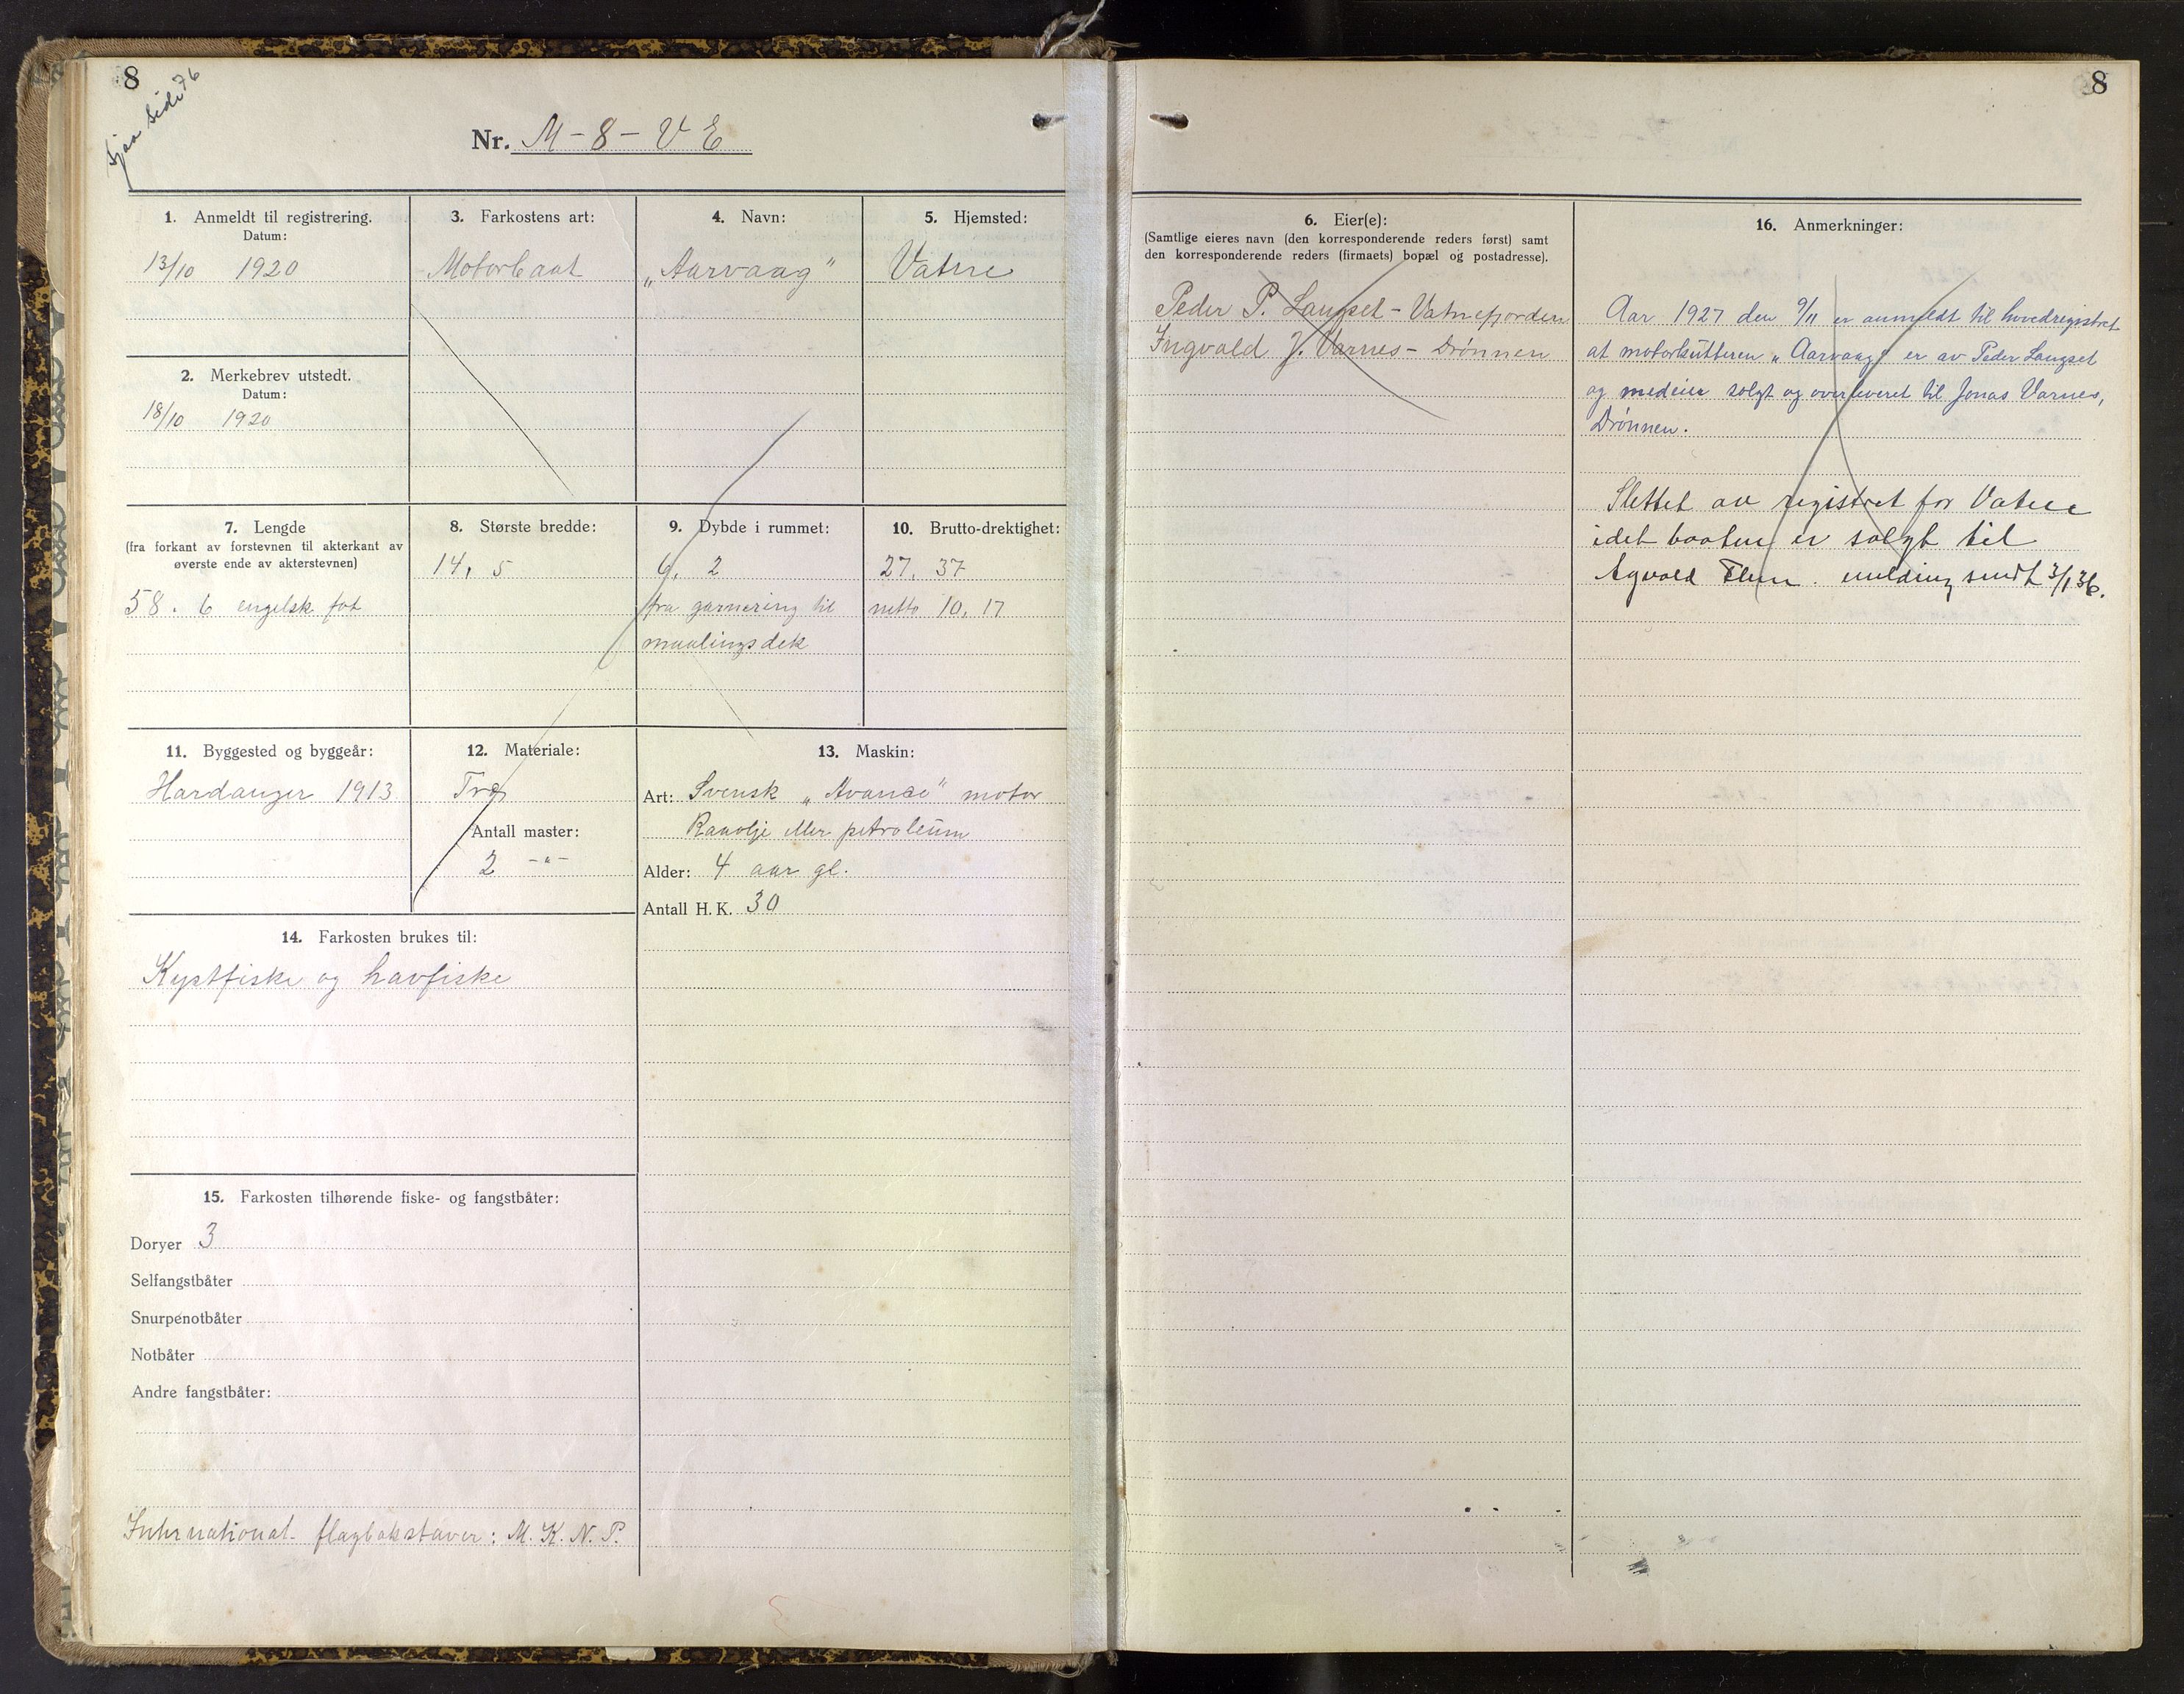 8
Sjaa side 76
Nr. M - 8 - V E
1. Anmeldt til registrering.
Datum:
13/10 1920
2. Merkebrev utstedt.
Datum:
18/10 1920
3. Farkostens art:
Motorbaat
4. Navn:
„Aarvaag"
5. Hjemsted:
Vatne
7. Lengde
(fra forkant av forstevnen til akterkant av
øverste ende av akterstevnen)
58. 6 engelsk fot
8. Største bredde:
14, 5
9. Dybde i rummet:
6, 2
fra garnering til
maalingsdek
10. Brutto-drektighet:
27, 37
netto 10, 17
11. Byggested og byggeår:
Hardanger 1913
12. Materiale:
Træ
Antall master:
2 -"-
13. Maskin:
Art: Svensk „Avance" motor
Raaolje eller petroleum
Alder: 4 aar gl.
Antall H. K. 30
14. Farkosten brukes til:
Kystfiske og havfiske
15. Farkosten tilhørende fiske- og fangstbåter:
Doryer 3
Selfangstbåter
Snurpenotbåter
Notbåter
Andre fangstbåter:
International. flagbokstaver: M. K. N. P.
8
6. Eier(e):
(Samtlige eieres navn (den korresponderende reders først) samt
den korresponderende reders (firmaets) bopæl og postadresse).
Peder P. Langset - Vatnefjorden
Ingvald J. Varnes - Drönnen
16. Anmerkninger:
Aar 1927 den 9/11 er anmeldt til hovedregistret
at motorkutteren „Aarvaag" er av Peder Langset
og medeier solgt og overleveret til Jonas Varnes,
Drönnen.
Slettet av registret for Vatne
idet baaten er solgt til
melding sendt 3/1 36.